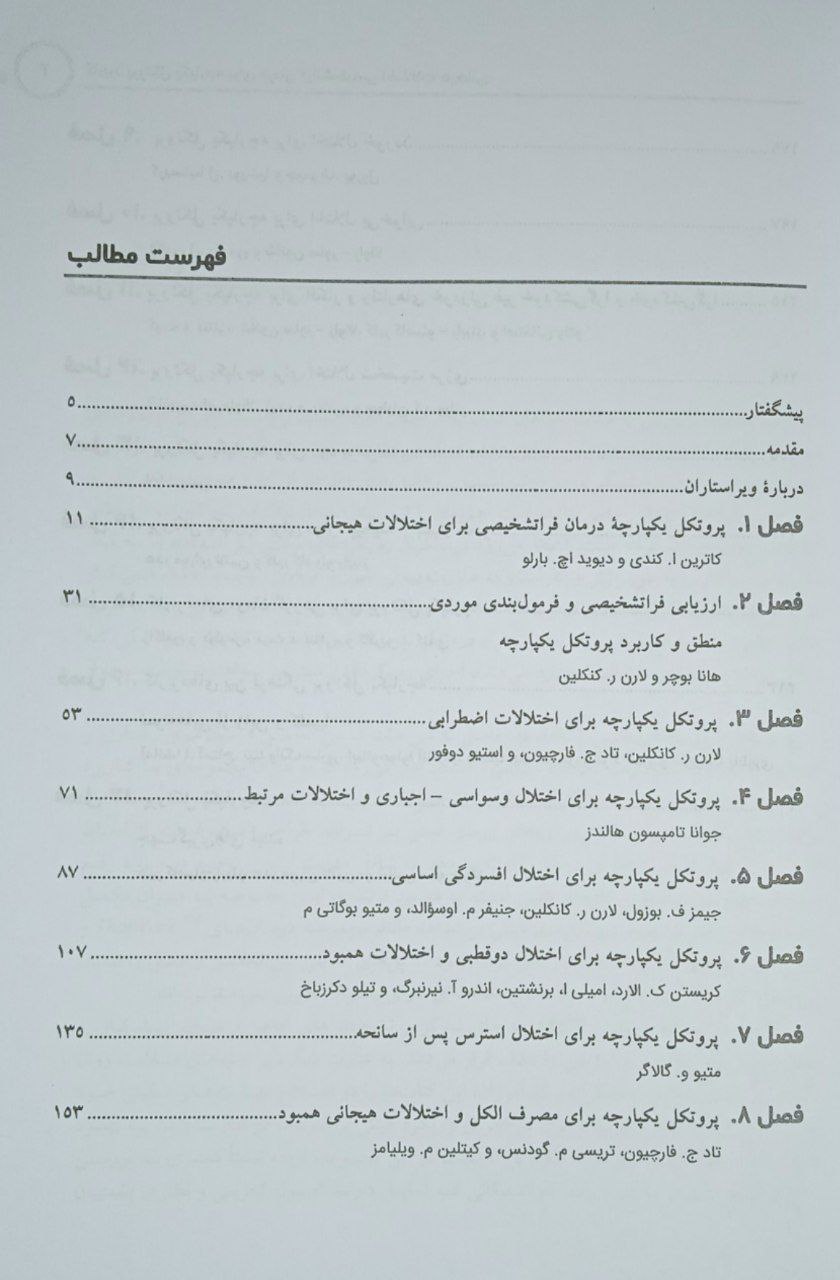 فهرست مطالب
پیشگفتار ۵
مقدمه ۷
دربارهٔ ویراستاران ۹
فصل ۱. پروتکل یکپارچهٔ درمان فراتشخیصی برای اختلالات هیجانی ۱۱
کاترین ا. کندی و دیوید اچ. بارلو
فصل ۲. ارزیابی فراتشخیصی و فرمول‌بندی موردی ۳۱
منطق و کاربرد پروتکل یکپارچه
هانا بوچر و لارن ر. کنکلین
فصل ۳. پروتکل یکپارچه برای اختلالات اضطرابی ۵۳
لارن ر. کانکلین، تاد ج. فارچیون، و استیو دوفور
فصل ۴. پروتکل یکپارچه برای اختلال وسواسی – اجباری و اختلالات مرتبط ۷۱
جوانا تامپسون هالندز
فصل ۵. پروتکل یکپارچه برای اختلال افسردگی اساسی ۸۷
جیمز ف. بوزول، لارن ر. کانکلین، جنیفر م. اوسؤالد، و متیو بوگاتی م
فصل ۶. پروتکل یکپارچه برای اختلال دوقطبی و اختلالات همبود ۱۰۷
کریستن ک. الارد، امیلی ا، برنشتین، اندرو آ. نیرنبرگ، و تیلو دکرزباخ
فصل ۷. پروتکل یکپارچه برای اختلال استرس پس از سانحه ۱۳۵
متیو و. گالاگر
فصل ۸. پروتکل یکپارچه برای مصرف الکل و اختلالات هیجانی همبود ۱۵۳
تاد ج. فارچیون، تریسی م. گودنس، و کیتلین م. ویلیامز